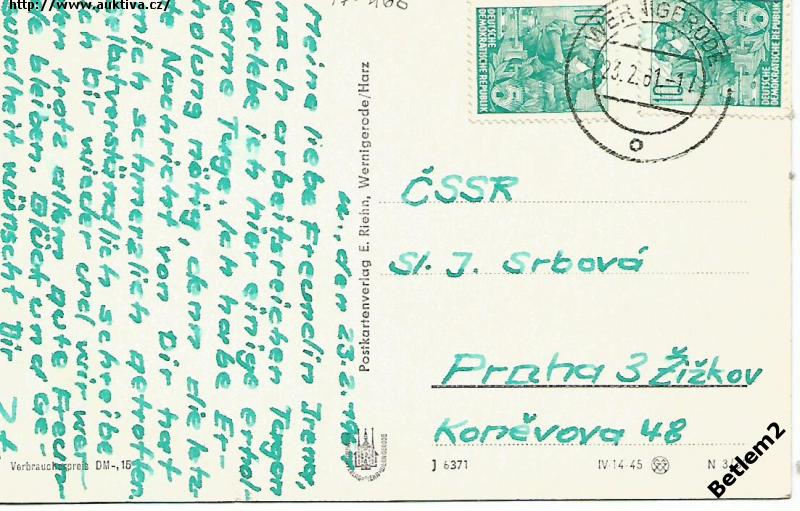 http://www.auktiva.cz/
W., den 23.2.196
Meine liebe Freundin Irena,
nach arbeitsreichen Tagen
verlebe ich hier einige erhol-
same Tage. Ich habe Er-
holung nötig, denn die letz
te Nachricht von Dir hat
mich schmerzlich getroffen
Selbstverständlich schreibe
ich Dir wieder und wir wer-
den trotz allem gute Freun-
de bleiben. Glück und Ge-
sundheit wünscht Dir
Postkartenverlag E. Riehn, Wernigerode/Harz
Verbraucherpreis DM -,15
10
DEUTSCHE
DEMOKRATISCHE REPUBLIK
10
DEUTSCHE
DEMOKRATISCHE REPUBLIK
WERNIGERODE
23.2.61-11
ČSSR
Sl. J. Srbová
Praha 3 Žižkov
Koněvova 48
J 6371
IV-14-45
N 3
Betlem2